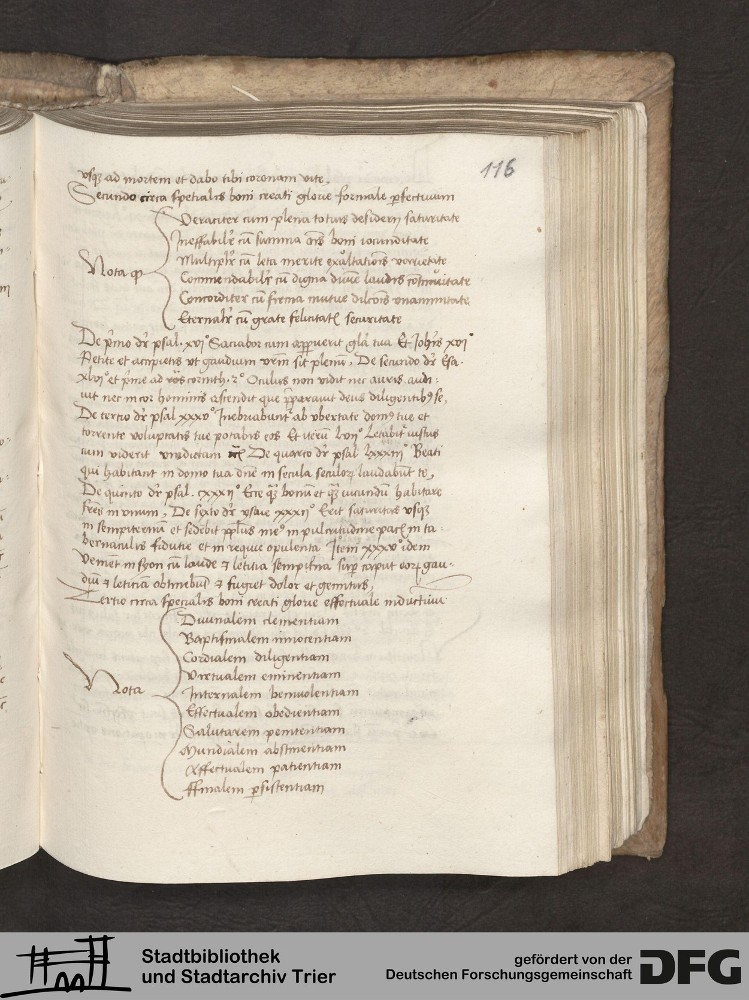 116
vsqȝ ad mortem et dabo tibi coronam vite.
Secundo circa spetialis boni creati glorie formale perfectiuum
Veraciter cum plena totius desiderij saturitate
Ineffabilr cū summa oīs boni iocunditate
Multiplr cū leta merite exultationis varietate
Nota ꝙ
Commendabilr cū digna diuine laudis continuitate
Concorditer cū firma mutue dilcōis vnanimitate
Eternalr cū grate felicitatis securitate
De pīmo dr psal. xvj° Saciabor cum apparuerit glā tua Et Johīs xvj°
Petite et accipietis vt gaudium vrm sit plenū. De secundo dr Esa.
et pīme ad corinth. 2° Oculus non vidit nec auris audi-
uit nec in cor hominis ascendit que pparauit deus diligentibȝ se.
De tercio dr psal xxxv° Inebriabunt ab vbertate domȝ tue et
torrente voluptatis tue potabis eos Et iterū lvij° Letabit iustus
cum viderit vindictam De quarto dr psal lxxxiij° Beati
qui habitant in domo tua dne in secula seculoꝝ laudabūt te.
De quinto dr psal. cxxxij° Ecce qȝ bonū et qȝ iucundū habitare
frēs in vnum. De sexto dr ysaie xxxij° Erit securitas vsqȝ
in sempiternū et sedebit ppls meȝ in pulcritudine pacis in ta-
bernaculis fidutie et in requie opulenta Item xxxv° idem
Venient in syon cū laude ⁊ letitia sempitna sup caput eoꝝ gau-
diū ⁊ leticiam obtinebūt ⁊ fugiet dolor et gemitus.
Tertio circa specialis boni creati glorie effectuale inductiuū
Diuinalem clementiam
Baptismalem innocentiam
Cordialem diligentiam
Virtualem eminentiam
Nota
Internalem beniuolentiam
Effectualem obedientiam
Salutarem penitentiam
Mundialem abstinentiam
Affectualem patientiam
ffinalem psistentiam
Stadtbibliothek
und Stadtarchiv Trier
gefördert von der
Deutschen Forschungsgemeinschaft
DFG